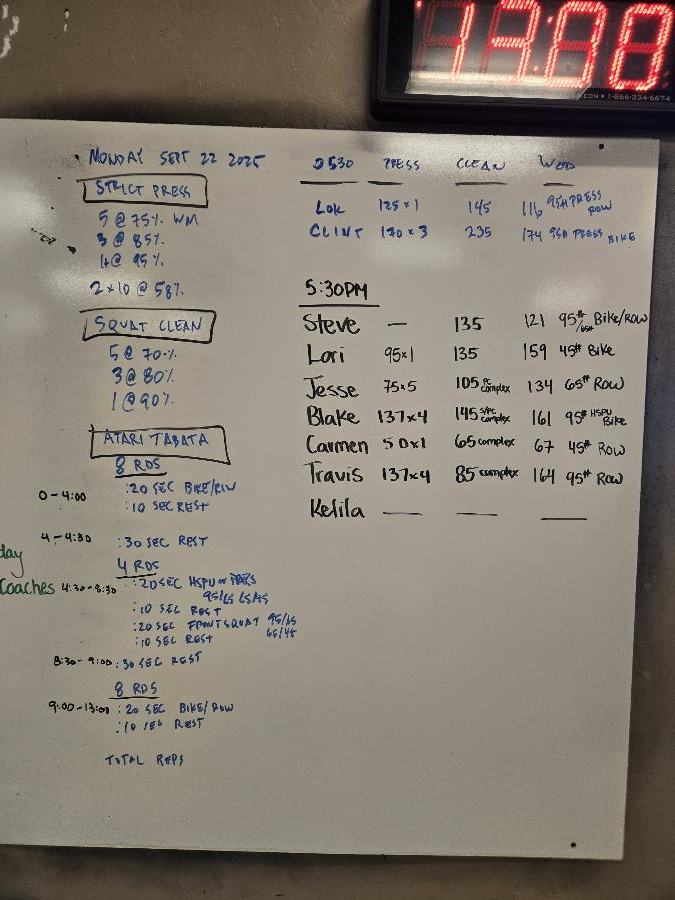 13:00
.COM • 1-866-334-6674
MONDAY SEPT 22 2025
STRICT PRESS
5 @ 75% WM
3 @ 85%
1+@ 95%
2×10 @ 58%
SQUAT CLEAN
5 @ 70%
3@80%
1 @90%
ATARI TABATA
8 RDS
0-4:00 :20 SEC BIKE/ROW
:10 SEC REST
4-4:30 :30 SEC REST
4 RDS
4:30-8:30 :20SEC HSPU or PRESS
95/65 65/45
:10 SEC REST
:20 SEC FRONT SQUAT 95/65
65/45
:10 SEC REST
8:30-9:00 :30 SEC REST
8 RDS
9:00-13:00 :20 SEC BIKE/ROW
:10 SEC REST
TOTAL REPS
day
Coaches
0530 PRESS CLEAN WOD
LOK 125×1 145 116 95# PRESS ROW
CLINT 170×3 235 174 95# PRESS BIKE
5:30PM
Steve — 135 121 95#/65# Bike/ROW
Lori 95×1 135 159 45# Bike
Jesse 75×5 105 PC complex 134 65# ROW
Blake 137×4 145 S/PC complex 161 95# HSPU Bike
Carmen 50×1 65 complex 67 45# ROW
Travis 137×4 85 complex 164 95# ROW
Kelila — — —